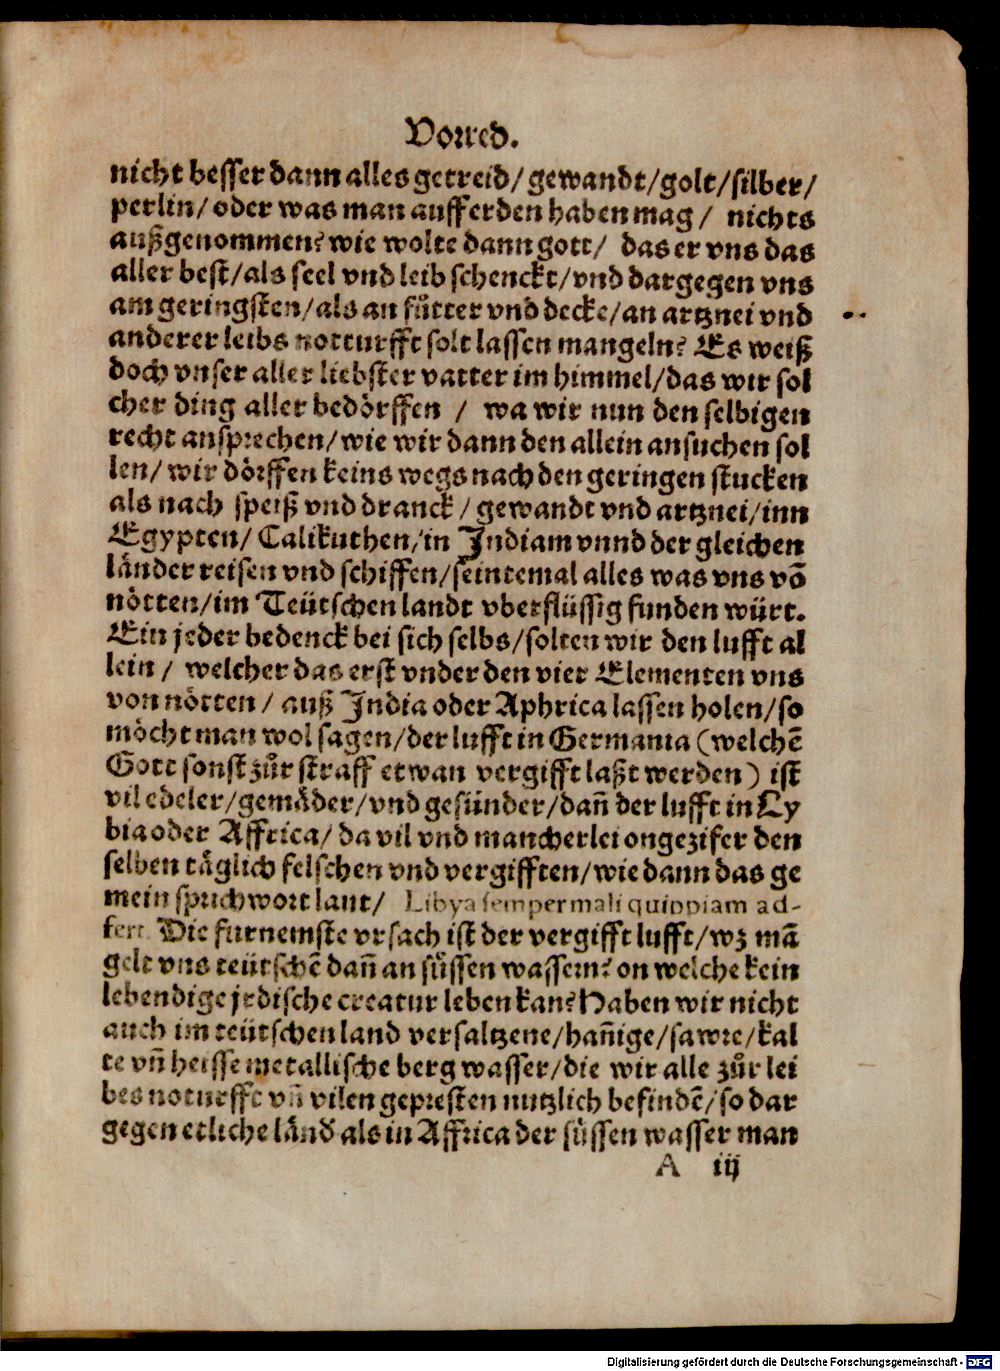 Vorred.
nicht besser dann alles getreid/ gewandt/golt/silber/
perlin/ oder was man auff erden haben mag / nichts
außgenommen? wie wolte dann gott/ das er vns das
aller best/als seel vnd leib schenckt/vnd dargegen vns
am geringsten/als an fůtter vnd decke/an artznei vnd
anderer leibs notturfft solt lassen mangeln? Es weiß
doch vnser aller liebster vatter im himmel/das wir sol
cher ding aller bedörffen / wa wir nun den selbigen
recht ansprechen/wie wir dann den allein ansuchen sol
len/ wir dörffen keins wegs nach den geringen stucken
als nach speiß vnd dranck / gewandt vnd artznei/inn
Egypten/ Calikuthen/in Indiam vnnd der gleichen
länder reisen vnd schiffen/seintemal alles was vns võ
nötten/im Teütschen landt vberflüssig funden würt.
Ein jeder bedenck bei sich selbs/solten wir den lufft al
lein / welcher das erst vnder den vier Elementen vns
von nötten / auß India oder Aphrica lassen holen/so
möcht man wol sagen/der lufft in Germania (welchẽ
Gott sonst zůr straff etwan vergifft laßt werden) ist
vil edeler/gemäder/vnd gesünder/dañ der lufft in Ly
bia oder Affrica/ da vil vnd mancherlei ongezifer den
selben täglich felschen vnd vergifften/wie dann das ge
mein sprichwort laut/ Libya semper mali quippiam ad-
fert. Die furnemste vrsach ist der vergifft lufft/wz mã
gelt vns teütschẽ dañ an sůssen wassern? on welche kein
lebendige jrdische creatur leben kan? Haben wir nicht
auch im teütschen land versaltzene/hañige/sawre/kal
te vñ heisse metallische berg wasser/die wir alle zůr lei
bes noturfft vñ vilen gepresten nutzlich befindẽ/so dar
gegen etliche länd als in Affrica der sůssen wasser man
A iij
Digitalisierung gefördert durch die Deutsche Forschungsgemeinschaft - DFG